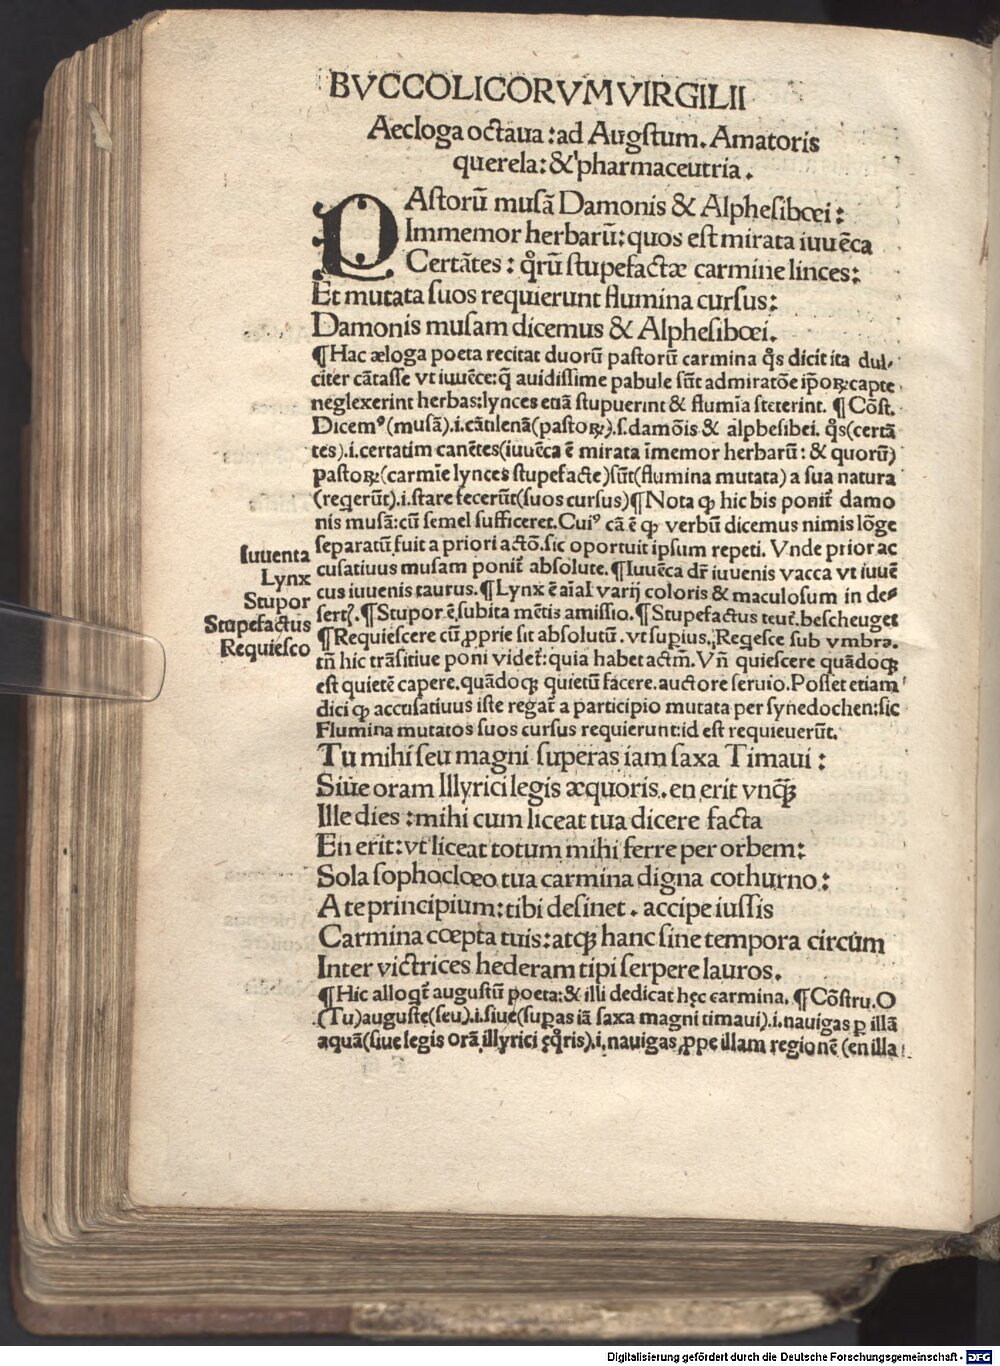 BVCCOLICORVM VIRGILII
Aecloga octaua : ad Augstum. Amatoris
querela : & pharmaceutria.
PAstorū musā Damonis & Alphesibœi :
Immemor herbarū : quos est mirata iuuēca
Certātes : q̊rū stupefactæ carmine linces :
Et mutata suos requierunt flumina cursus :
Damonis musam dicemus & Alphesibœi.
¶Hac æloga poeta recitat duorū pastorū carmina q̊s dicit ita dul-
citer cātasse vt iuuēce: q̄ auidissime pabule sūt admiratōe ip̄oꝝ: capte
neglexerint herbas: lynces etiā stupuerint & flumīa steterint. ¶Cōst.
Dicemꝰ(musā).i.cātilenā(pastoꝝ).s.damōis & alphesibei. q̊s(certā
tes).i.certatim canētes(iuuēca ē mirata īmemor herbarū : & quorū)
pastoꝝ(carmīe lynces stupefacte)sūt(flumina mutata) a sua natura
(reqerūt).i.stare fecerūt(suos cursus)¶Nota ꝙ hic bis ponit̄ damo
nis musā: cū semel sufficeret. Cuiꝰ cā ē ꝙ verbū dicemus nimis lōge
separatū fuit a priori actō. sic oportuit ipsum repeti. Vnde prior ac
cusatiuus musam ponit̄ absolute. ¶Iuuēca dr̄ iuuenis vacca vt iuuē
cus iuuenis taurus. ¶Lynx ē aīal varij coloris & maculosum in de-
sert. ¶Stupor ē subita mētis amissio. ¶Stupefactus teut. bescheuget
¶Requiescere cū ꝓprie sit absolutū . vt supius. Reqesce sub vmbra.
tn̄ hic trāsitiue poni videt̄: quia habet actm̄. Vn̄ quiescere quādoqꝫ
est quietē capere. quādoqꝫ quietū facere. auctore seruio. Posset etiam
dici ꝙ accusatiuus iste regat̄ a participio mutata per synedochen: sic
Flumina mutatos suos cursus requierunt: id est requieuerūt.
Iuuenta
Lynx
Stupor
Stupefactus
Requiesco
Tu mihi seu magni superas iam saxa Timaui :
Siue oram Illyrici legis æquoris. en erit vnq̄ꝫ
Ille dies : mihi cum liceat tua dicere facta
En erit : vt liceat totum mihi ferre per orbem :
Sola sophoclœo tua carmina digna cothurno :
A te principium : tibi desinet. accipe iussis
Carmina cœpta tuis : atqꝫ hanc sine tempora circūm
Inter victrices hederam tipi serpere lauros.
¶Hic alloqt̄ augustū poeta: & illi dedicat hęc carmina. ¶Cōstru. O
(Tu)auguste(seu).i.siue(supas iā saxa magni timaui).i.nauigas ꝑ illā
aquā(siue legis orā illyrici ęq̊ris).i.nauigas ꝓpe illam regionē (en illa
Digitalisierung gefördert durch die Deutsche Forschungsgemeinschaft - DFG